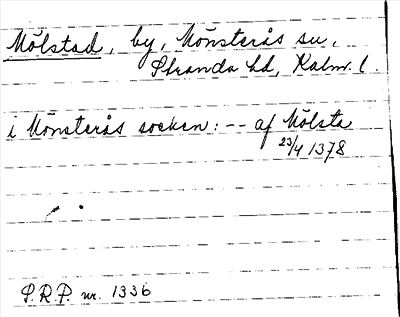 Mölstad, by, Mönsterås sn,
Stranda hd, Kalm. l
i Mönsterås socken: -- af Mölsta
23/4 1378
S.R.P. nr. 1336